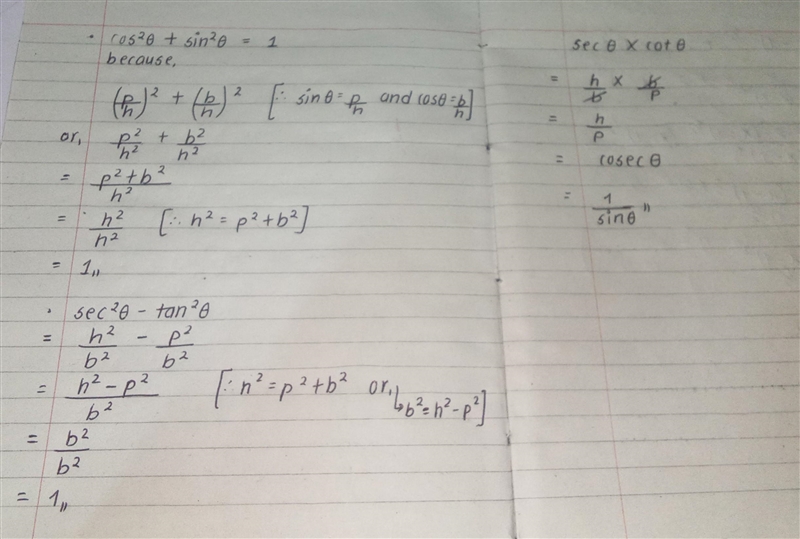 · cos²θ + sin²θ = 1
because,
(p/h)² + (b/h)² [∵ sinθ = p/h and cosθ = b/h]
or, p²/h² + b²/h²
= p² + b²/h²
= h²/h² [∵ h² = p² + b²]
= 1,,
· sec²θ - tan²θ
= h²/b² - p²/b²
= h² - p²/b² [∵ h² = p² + b² or, ↳ b² = h² - p²]
= b²/b²
= 1,,
secθ × cotθ
= h/b × b/p
= h/p
= cosecθ
= 1/sinθ ,,